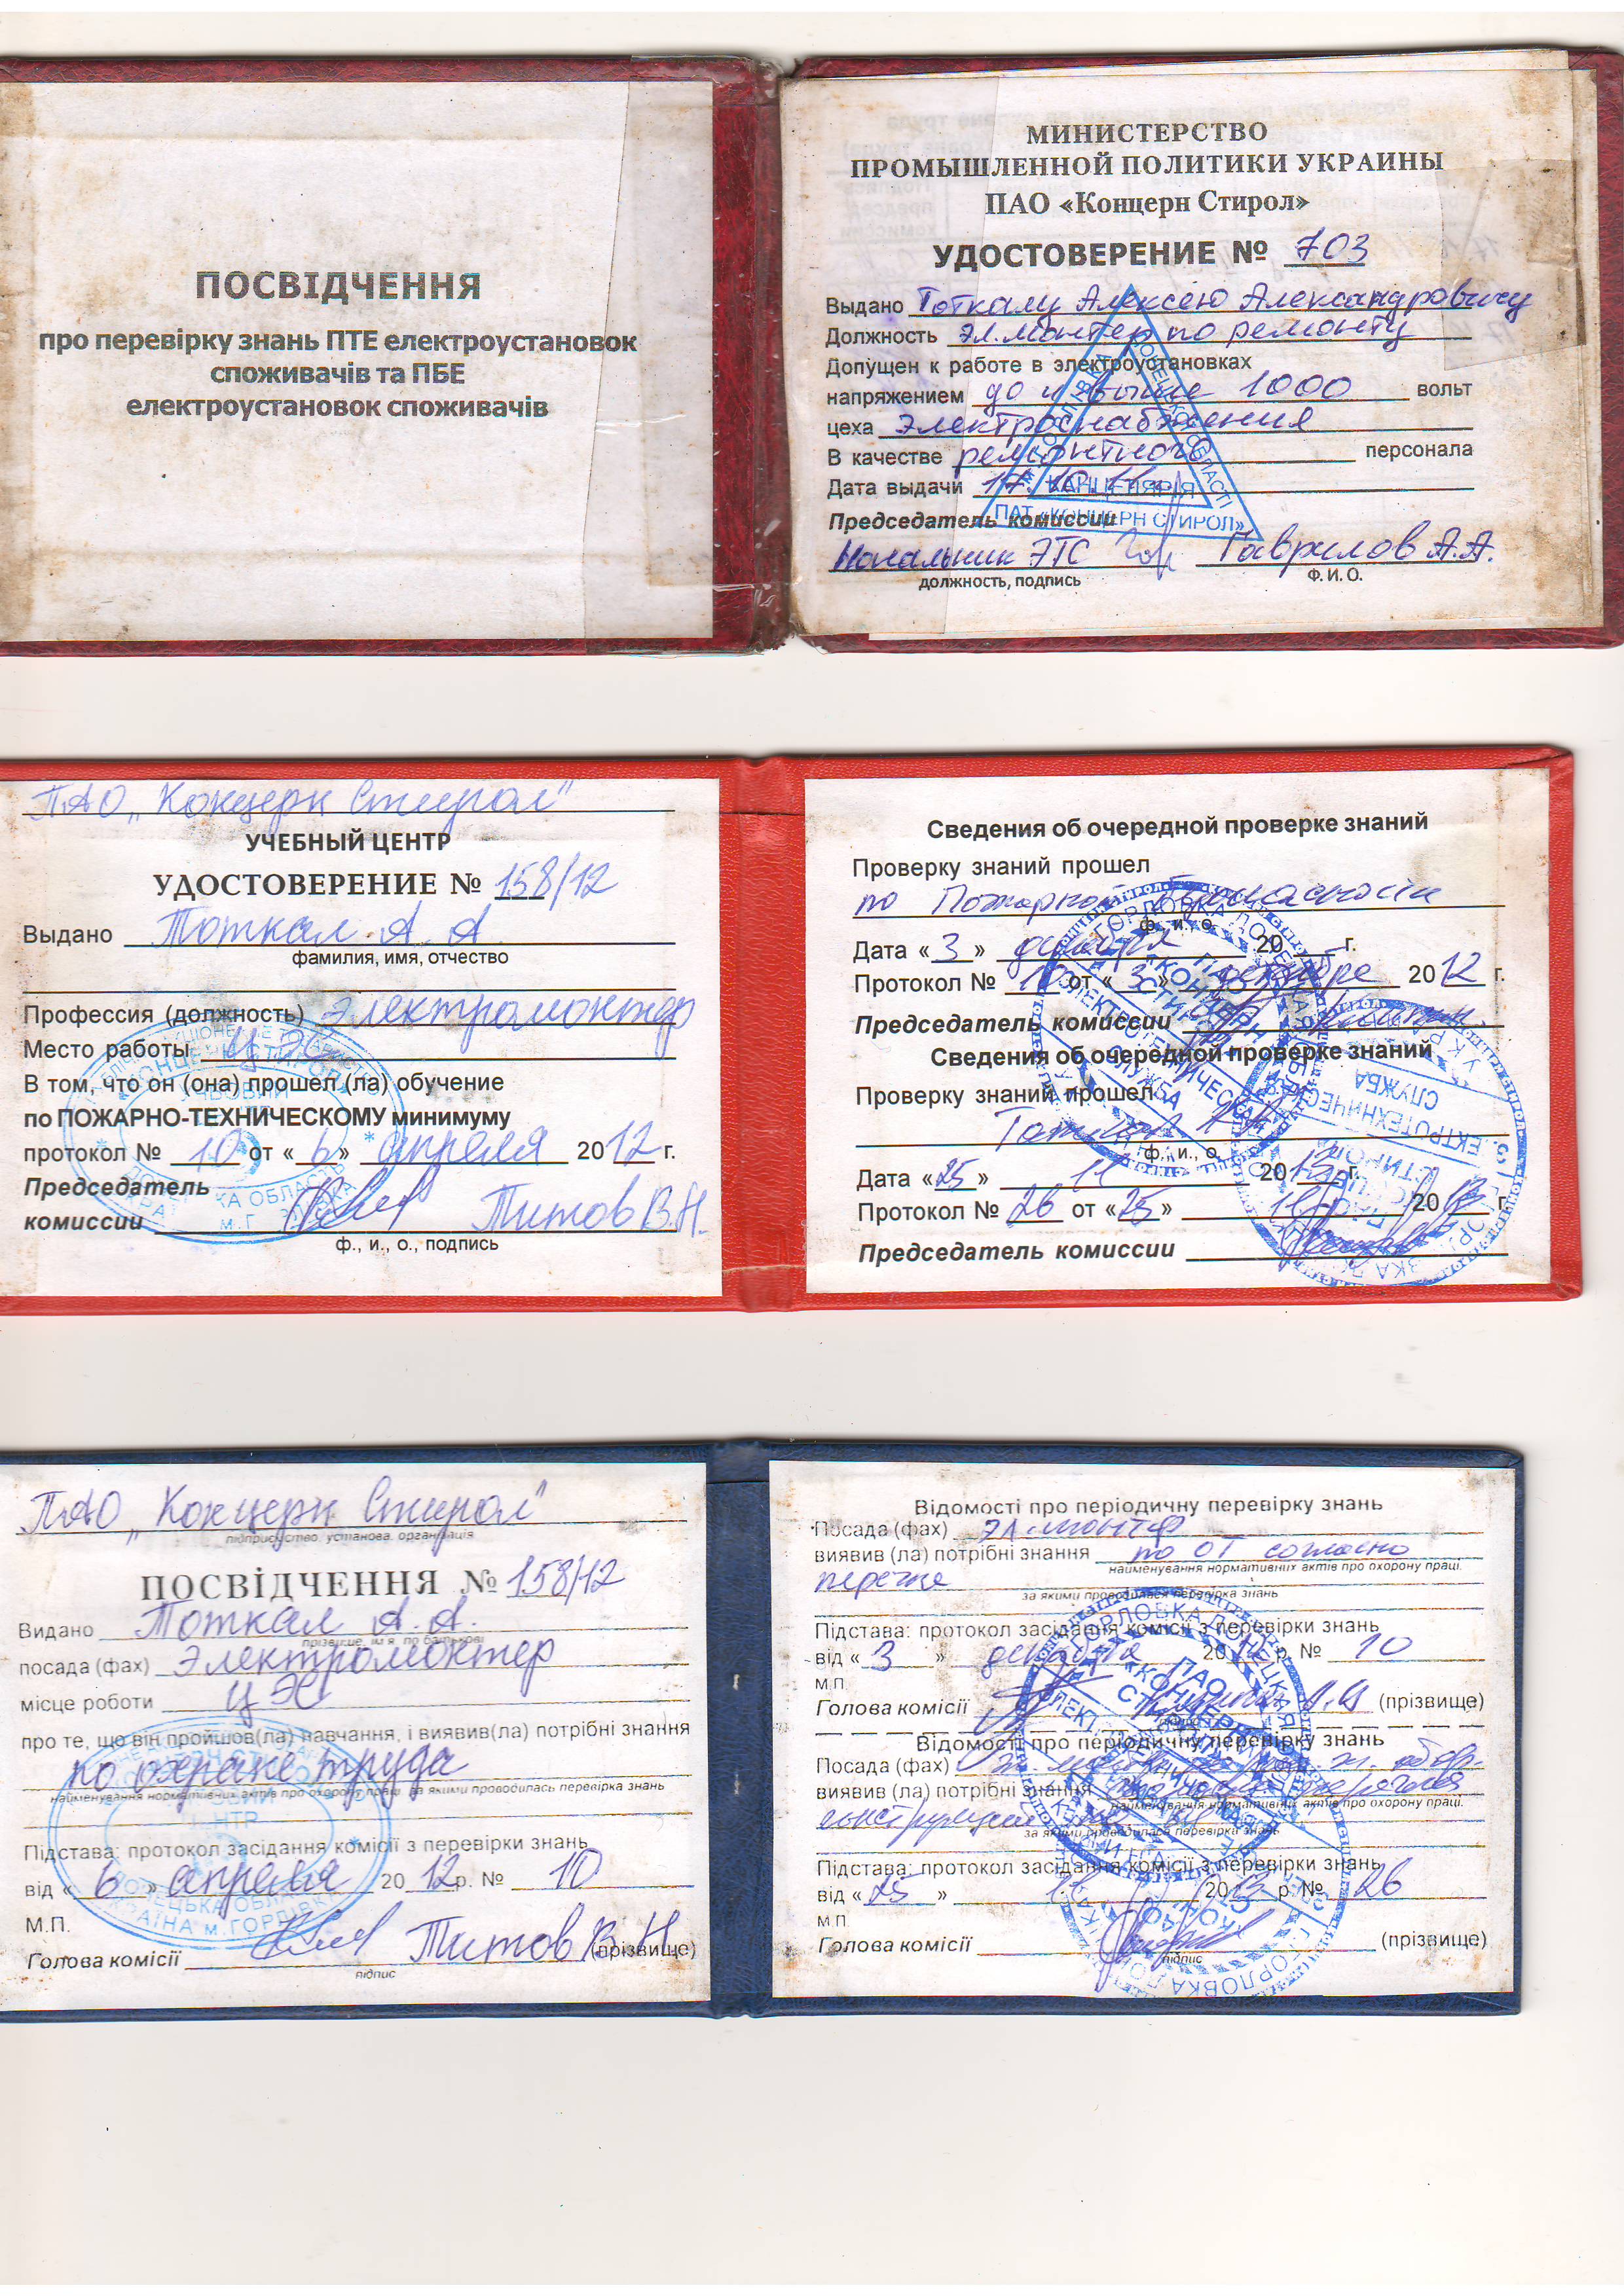 ПОСВІДЧЕННЯ
про перевірку знань ПТЕ електроустановок
споживачів та ПБЕ
електроустановок споживачів
МИНИСТЕРСТВО
ПРОМЫШЛЕННОЙ ПОЛИТИКИ УКРАИНЫ
ПАО «Концерн Стирол»
УДОСТОВЕРЕНИЕ № 703
Выдано Тоткалу Алексею Александровичу
Должность Эл.монтер по ремонту
Допущен к работе в электроустановках
напряжением до и выше 1000 вольт
цеха Электроснабжения
В качестве ремонтного персонала
Дата выдачи 17.10.11
КАНЦЕЛЯРІЯ
ПАТ «КОНЦЕРН СТИРОЛ»
Председатель комиссии
Начальник ЭТС Гаврилов А.А.
должность, подпись Ф. И. О.
ПАО „Концерн Стирол"
УЧЕБНЫЙ ЦЕНТР
УДОСТОВЕРЕНИЕ № 158/12
Выдано Тоткал А. А.
фамилия, имя, отчество
Профессия (должность) Электромонтер
Место работы ЦЭС
В том, что он (она) прошел (ла) обучение
по ПОЖАРНО-ТЕХНИЧЕСКОМУ минимуму
протокол № 10 от «6» апреля 2012 г.
Председатель
комиссии Титов В.Н.
ф., и., о., подпись
Сведения об очередной проверке знаний
Проверку знаний прошел
по Пожарной безопасности
ф., и., о.
Дата «3» декабря 20 г.
Протокол № 10 от «3» декабря 2012 г.
Председатель комиссии
Сведения об очередной проверке знаний
Проверку знаний прошел
Тоткал А.А.
ф., и., о.
Дата «25» 11 2013 г.
Протокол № 26 от «25» 11 2013 г.
Председатель комиссии
ПАО „Концерн Стирол"
підприємство, установа, організація
ПОСВІДЧЕННЯ № 158/12
Видано Тоткал А. А.
прізвище, ім'я, по батькові
посада (фах) Электромонтер
місце роботи ЦЭС
про те, що він пройшов(ла) навчання, і виявив(ла) потрібні знання
по охране труда
найменування нормативних актів про охорону праці, за якими проводилась перевірка знань
Підстава: протокол засідання комісії з перевірки знань
від «6» апреля 2012р. № 10
М.П.
Голова комісії Титов В.Н. (прізвище)
підпис
Відомості про періодичну перевірку знань
Посада (фах) эл.монтер
виявив (ла) потрібні знання по ОТ согласно
найменування нормативних актів про охорону праці,
перечне
за якими проводилася перевірка знань
Підстава: протокол засідання комісії з перевірки знань
від «3» декабря 2012 р. № 10
М.П.
Голова комісії (прізвище)
Відомості про періодичну перевірку знань
Посада (фах)
виявив (ла) потрібні знання
найменування нормативних актів про охорону праці,
за якими проводилася перевірка знань
Підстава: протокол засідання комісії з перевірки знань
від «25» 11 2013 р. № 26
М.П.
Голова комісії (прізвище)
підпис